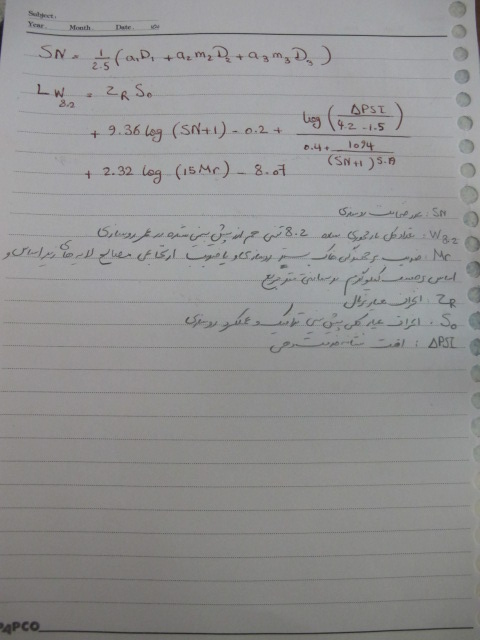 Subject.
Year. Month. Date.
SN = 1/2.5 (a1D1 + a2m2D2 + a3m3D3)
LW8.2 = ZR S0
+ 9.36 log (SN+1) - 0.2 + log(ΔPSI / 4.2 - 1.5) / 0.4 + 1094/(SN+1)^5.19
+ 2.32 log (15Mr) - 8.07
SN : عدد ضخامت روسازی
W8.2 : تعداد کل بار محوری ساده 8.2 تنی هم ارز پیش بینی شده در عمر روسازی
Mr : ضریب برجهندگی خاک بستر روسازی و یا ضریب ارتجاعی مصالح لایه های زیراساس و
اساس بر حسب کیلوگرم بر سانتی متر مربع
ZR : انحراف معیار نرمال
S0 : انحراف معیار کل پیش بینی ترافیک و عملکرد روسازی
ΔPSI : افت نشانه خدمت دهی
PAPCO